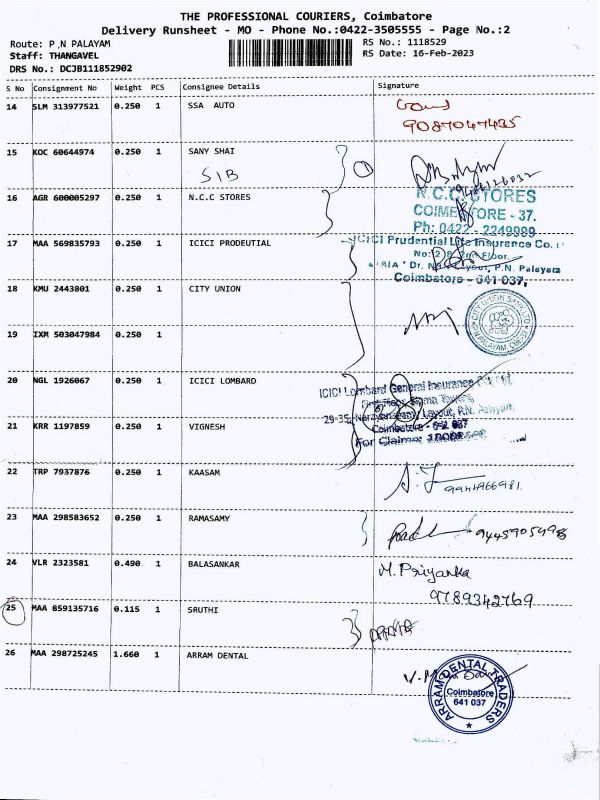 THE PROFESSIONAL COURIERS, Coimbatore
Delivery Runsheet - MO - Phone No.:0422-3505555 - Page No.:2
Route: P ,N PALAYAM
Staff: THANGAVEL
DRS No.: DCJB111852902
RS No.: 1118529
RS Date: 16-Feb-2023
S No Consignment No Weight PCS Consignee Details Signature
14 SLM 313977521 0.250 1 SSA AUTO
9087047435
15 KOC 60644974 0.250 1 SANY SHAI
SIB
1
16 AGR 600005297 0.250 1 N.C.C STORES
N.C.C. STORES
COIMBATORE - 37.
Ph: 0422 - 2249999
17 MAA 569835793 0.250 1 ICICI PRODEUTIAL
ICICI Prudential Life Insurance Co.
P.N. Palayam
Coimbatore - 641 037,
18 KMU 2443801 0.250 1 CITY UNION
CITY UNION BANK LTD
19 IXM 503047984 0.250 1
20 NGL 1926067 0.250 1 ICICI LOMBARD
ICICI Lombard General Insurance
Layout, P.N. Palayam,
Coimbatore - 641 037
21 KRR 1197859 0.250 1 VIGNESH
22 TRP 7937876 0.250 1 KAASAM
9944966981
23 MAA 298583652 0.250 1 RAMASAMY
9445905498
24 VLR 2323581 0.490 1 BALASANKAR
M. Priyanka
9789342769
25 MAA 859135716 0.115 1 SRUTHI
26 MAA 298725245 1.660 1 ARRAM DENTAL
ARRAM DENTAL TRADERS
Coimbatore
641 037